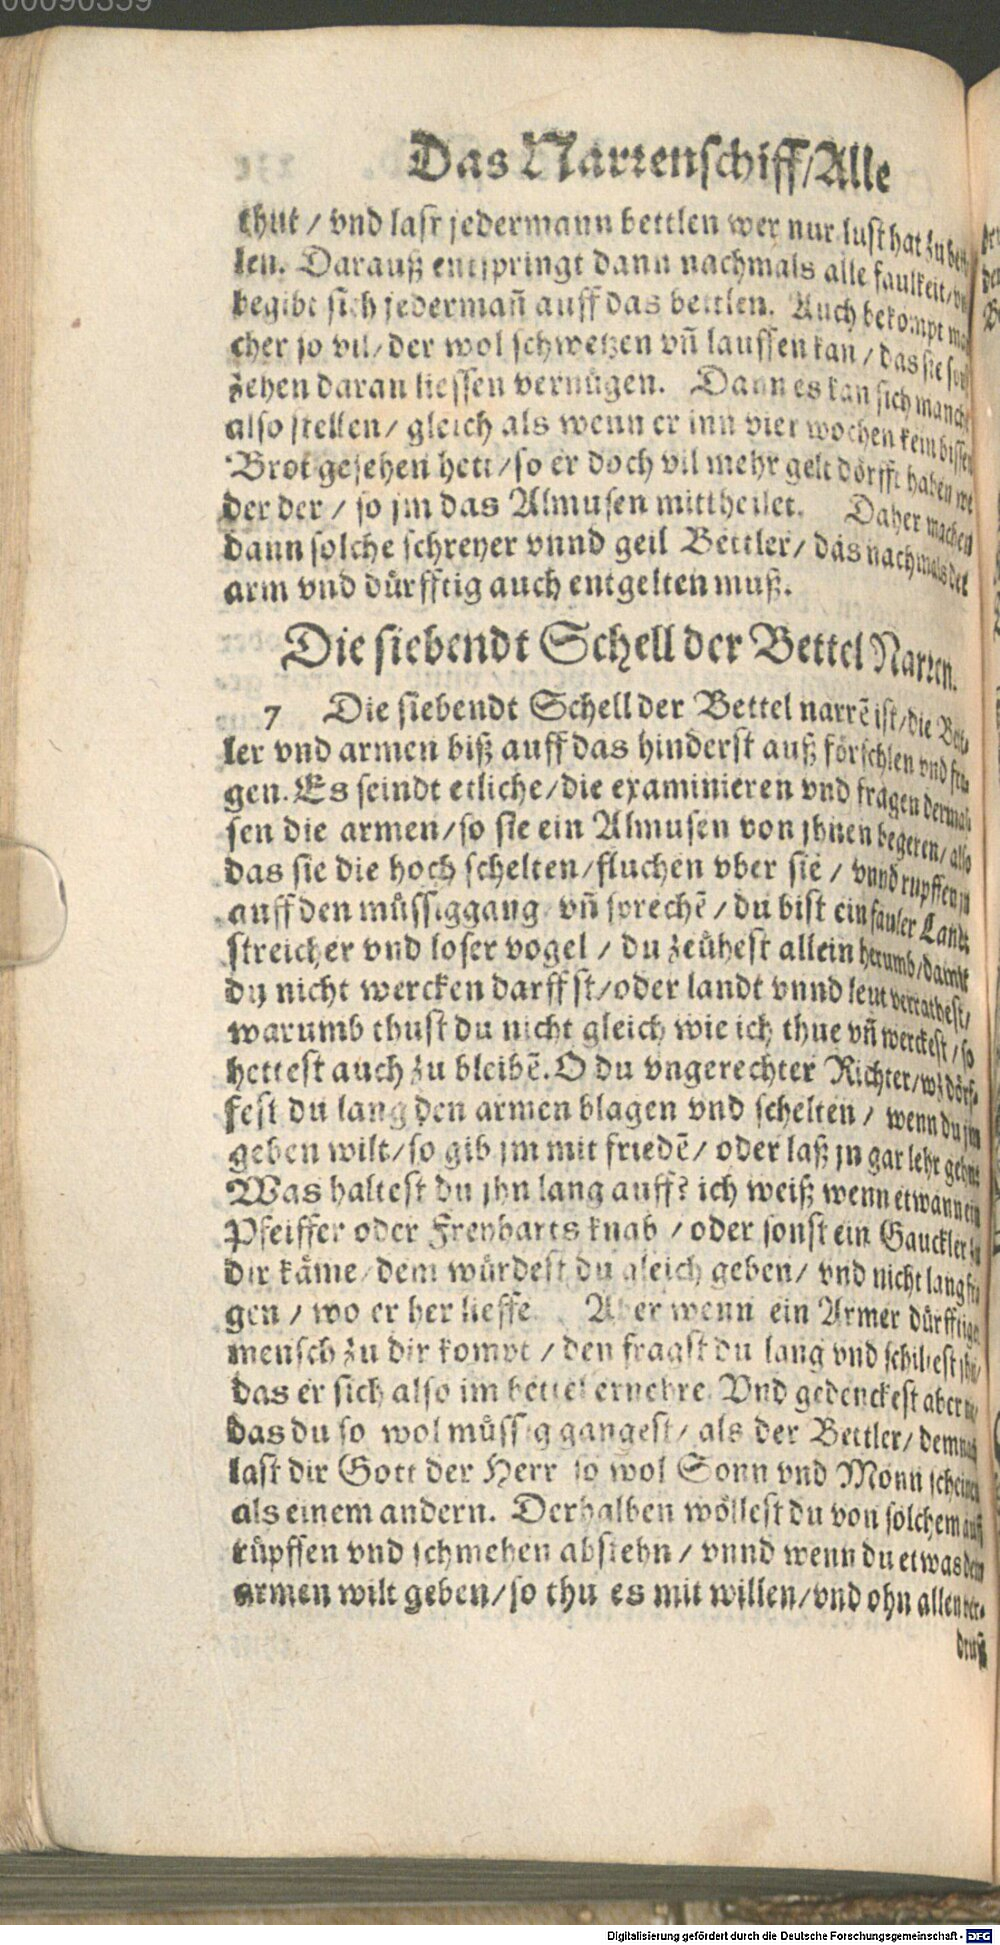 00090359
Das Narrenschiff/Alle
thut / vnd last jedermann bettlen wer nur lust hat zu bett-
len. Darauß entspringt dann nachmals alle faulkeit/vnd
begibt sich jedermañ auff das bettlen. Auch bekompt man
cher so vil/der wol schwetzen vñ lauffen kan / das sie sonst
zehen daran liessen vernügen. Dann es kan sich mancher
also stellen/ gleich als wenn er inn vier wochen kein bissen
Brot gesehen hett/so er doch vil mehr gelt dörfft haben we
der der / so jm das Almusen mittheilet. Daher machen
dann solche schreyer vnnd geil Bettler/ das nachmals der
arm vnd dürfftig auch entgelten muß.
Die siebendt Schell der Bettel Narren.
7 Die siebendt Schell der Bettel narrẽ ist/die Bett-
ler vnd armen biß auff das hinderst auß förschlen vnd fra-
gen. Es seindt etliche/die examinieren vnd fragen dermas
sen die armen/so sie ein Almusen von jhnen begeren/ also
das sie die hoch schelten/fluchen vber sie / vnnd rupffen jn
auff den müssiggang vñ sprechẽ / du bist ein fauler Landt
streicher vnd loser vogel / du zeühest allein herumb/damit
du nicht wercken darffst/oder landt vnnd leut verrathest/
warumb thust du nicht gleich wie ich thue vñ werckest / so
hettest auch zu bleibẽ. O du vngerechter Richter/wz dörf-
fest du lang den armen blagen vnd schelten / wenn du jm
geben wilt/so gib jm mit friedẽ/ oder laß jn gar lehr gehn.
Was haltest du jhn lang auff? ich weiß wenn etwann ein
Pfeiffer oder Freyharts knab / oder sonst ein Gauckler zu
dir käme/dem würdest du gleich geben/ vnd nicht lang fra
gen / wo er her lieffe. Aber wenn ein Armer dürfftiger
mensch zu dir kompt / den fragst du lang vnd schiltest jhn/
das er sich also im bettel ernehre. Vnd gedenckest aber nit/
das du so wol müssig gangest/ als der Bettler/ demnach
last dir Gott der Herr so wol Sonn vnd Monn scheinen
als einem andern. Derhalben wöllest du von solchem auß
rüpffen vnd schmehen abstehn / vnnd wenn du etwas dem
armen wilt geben/so thu es mit willen/vnd ohn allen ver-
druß
Digitalisierung gefördert durch die Deutsche Forschungsgemeinschaft - DFG